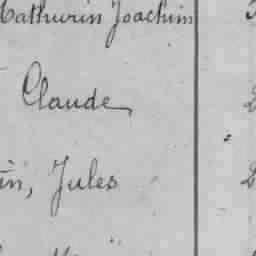 Mathurin Joachim
Claude
in, Jules